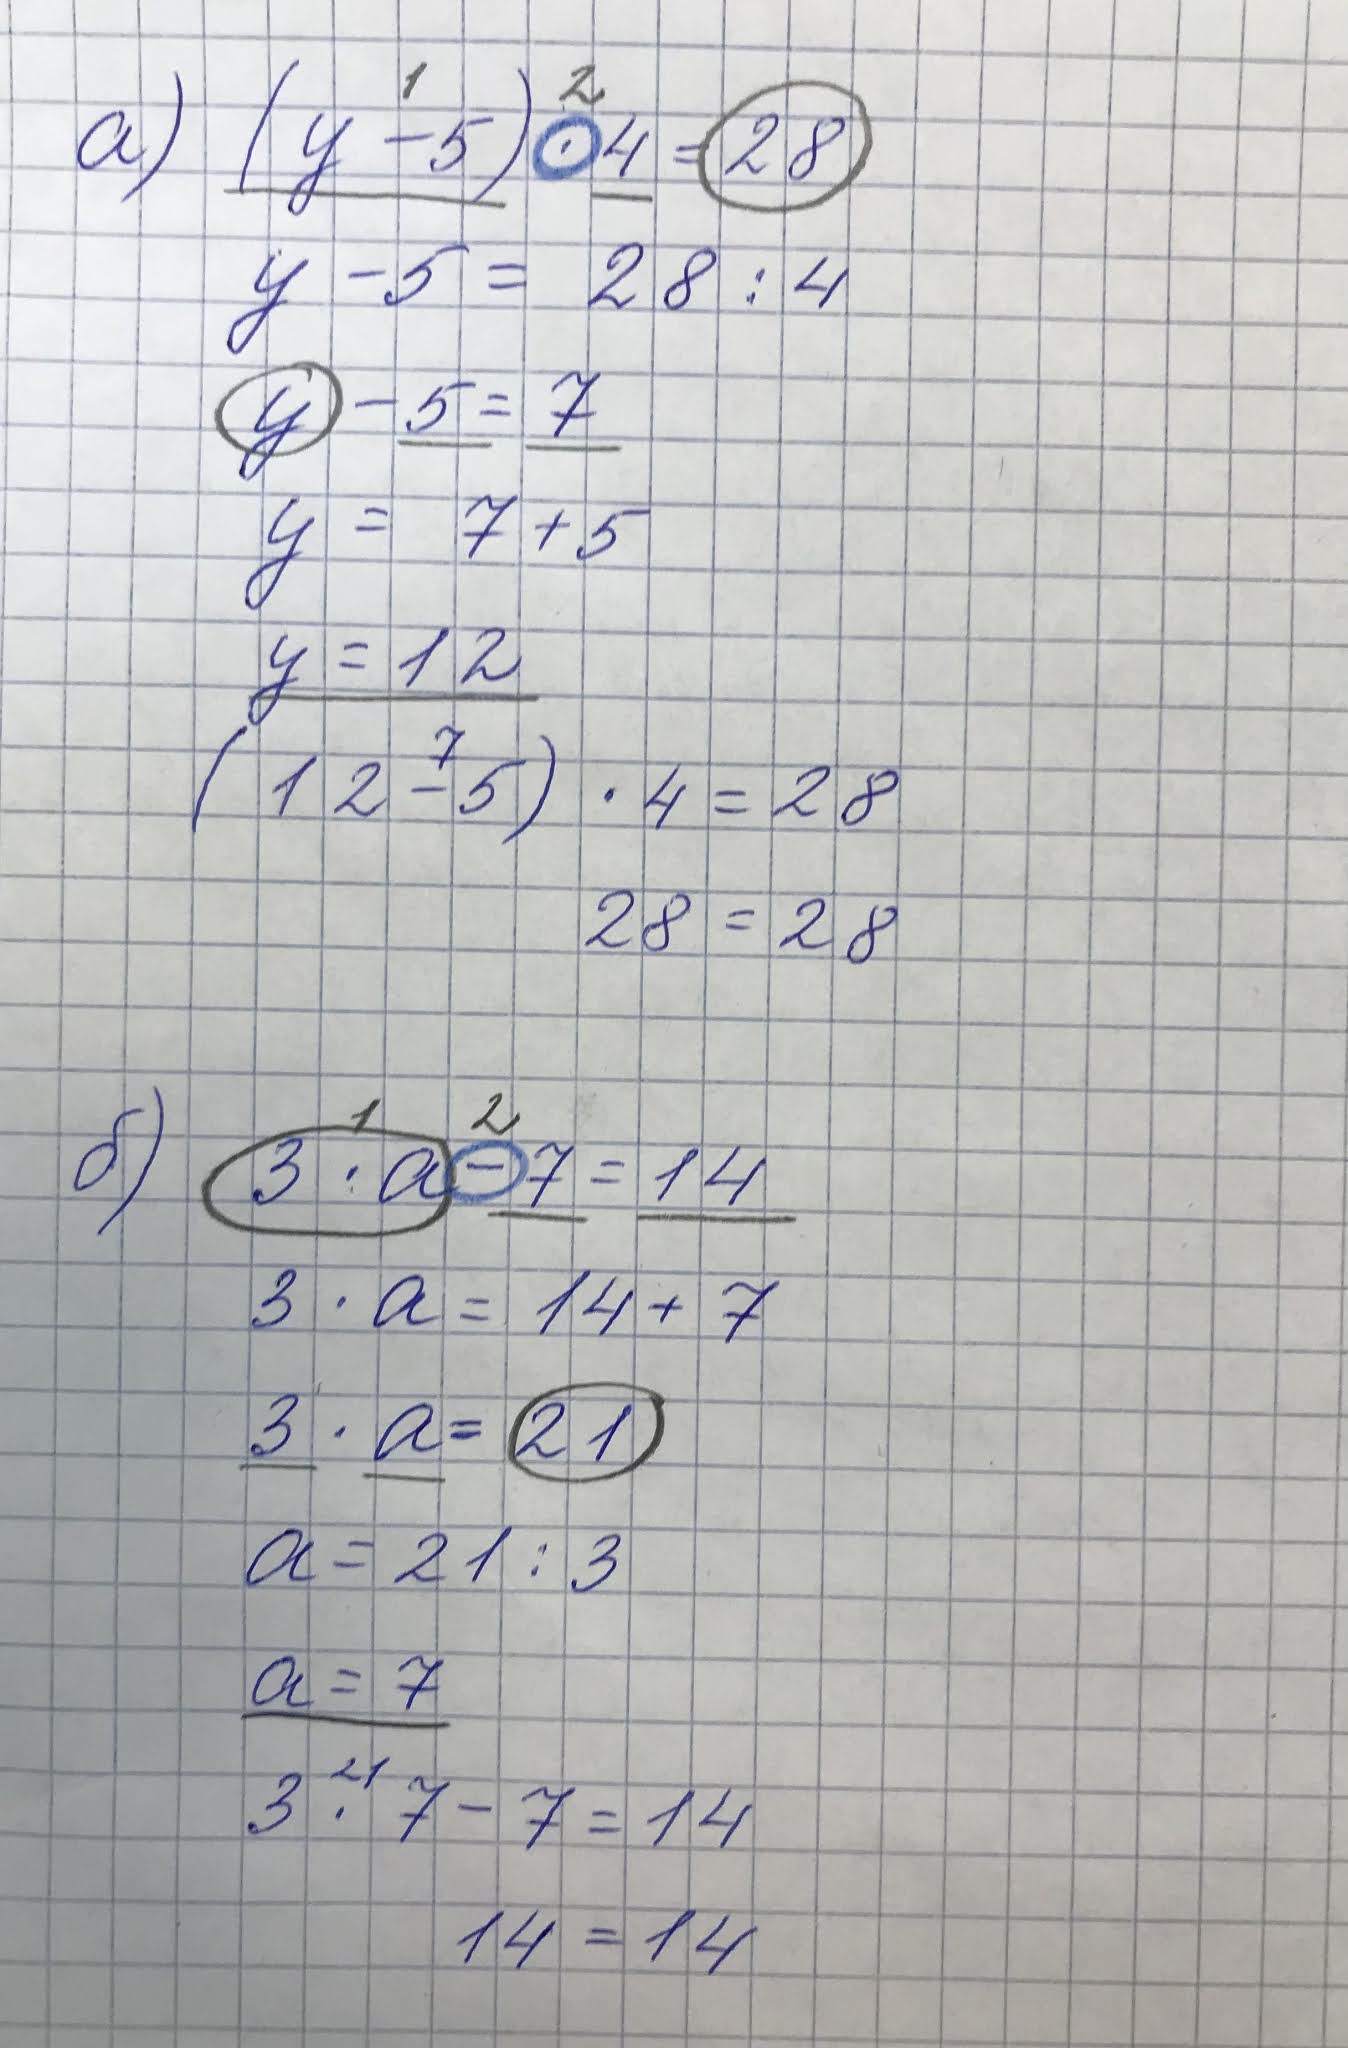 1 2
а) (y - 5) · 4 = 28
y - 5 = 28 : 4
y - 5 = 7
y = 7 + 5
y = 12
7
(12 - 5) · 4 = 28
28 = 28
1 2
б) 3 · a - 7 = 14
3 · a = 14 + 7
3 · a = 21
a = 21 : 3
a = 7
21
3 · 7 - 7 = 14
14 = 14